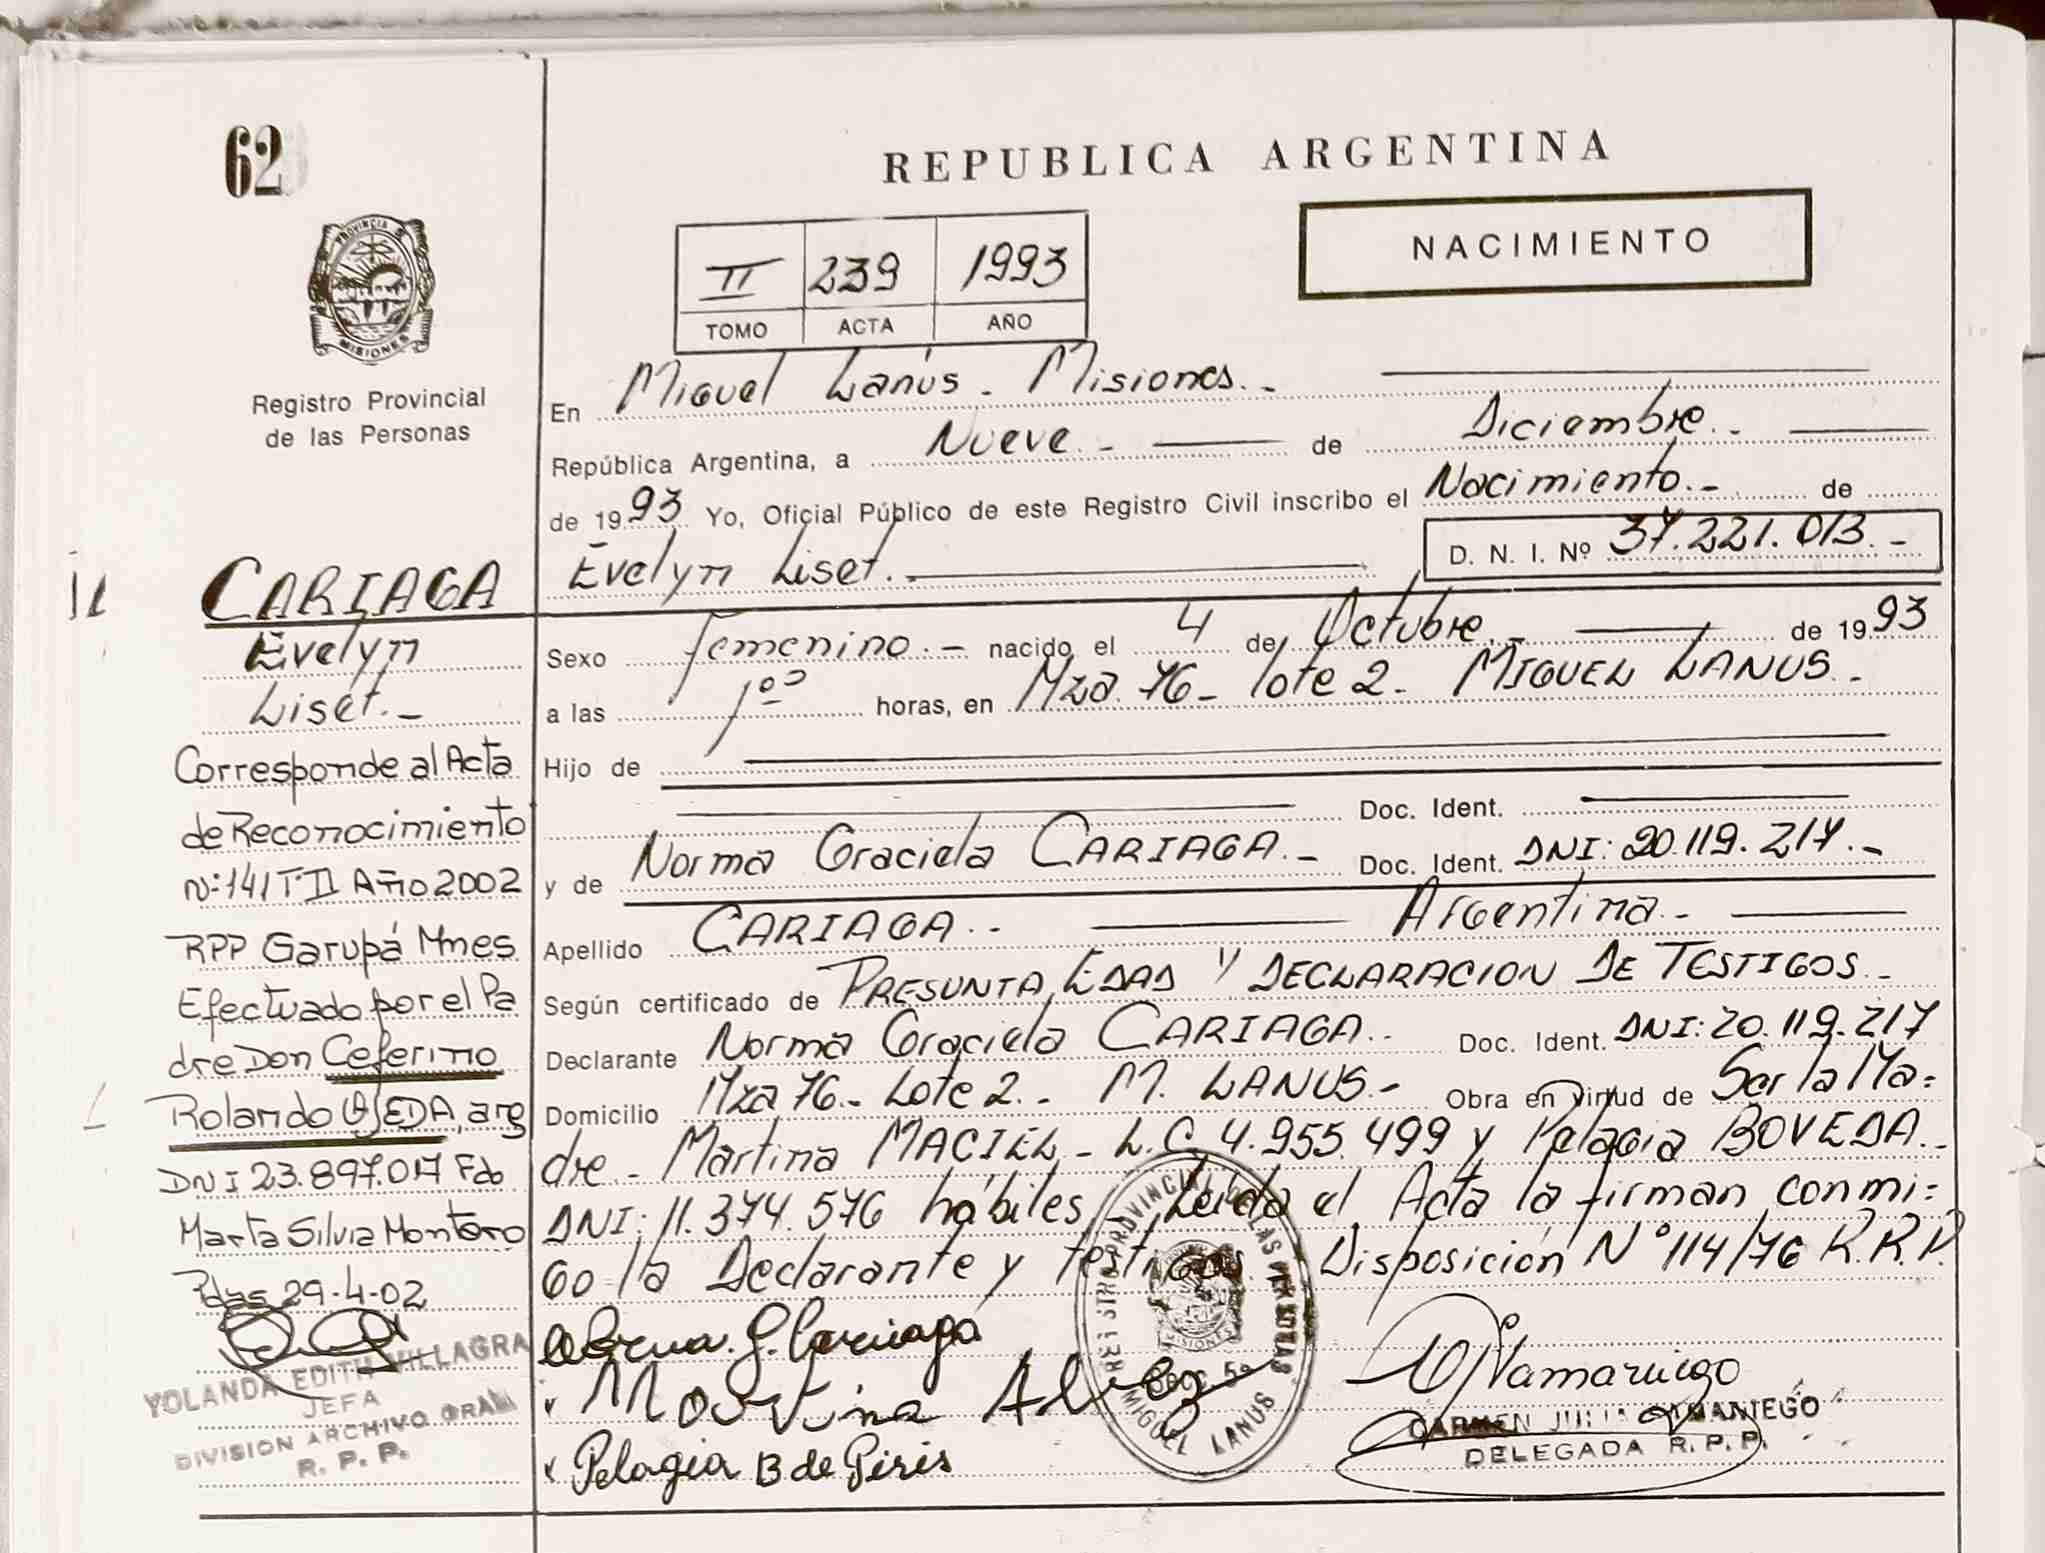 62
REPUBLICA ARGENTINA
NACIMIENTO
II 239 1993
TOMO ACTA AÑO
PROVINCIA DE MISIONES
Registro Provincial
de las Personas
En Miguel Lanús - Misiones.-
República Argentina, a Nueve.- de Diciembre.-
de 1993 Yo, Oficial Público de este Registro Civil inscribo el Nacimiento.- de
Evelyn Liset.
D. N. I. Nº 37.221.013.-
Sexo femenino.- nacido el 4 de Octubre.- de 1993
a las 1º⁰ horas, en Mza. 76- lote 2- MIGUEL LANUS.-
Hijo de
Doc. Ident.
y de Norma Graciela CARIAGA.- Doc. Ident. DNI: 20.119.217.-
Apellido CARIAGA.- Argentina.-
Según certificado de PRESUNTA EDAD Y DECLARACION DE TESTIGOS.-
Declarante Norma Graciela CARIAGA.- Doc. Ident. DNI: 20.119.217
Domicilio Mza 76.- Lote 2.- M. LANUS.- Obra en Virtud de Ser la Ma=
dre.- Martina MACIEL - L.C 4.955.499 y Pelagia BOVEDA.-
DNI: 11.374.576 hábiles, Leída el Acta la firman conmi=
go la Declarante y testigos. Disposición Nº 114/76 R.R.P.
Norma. G. Cariaga
Martina
Pelagia B de Piris
REGISTRO PROVINCIAL DE LAS PERSONAS
MISIONES
MIGUEL LANUS
CARMEN JULIA SAMANIEGO
DELEGADA R. P. P.
CARIAGA
Evelyn
Liset.-
Corresponde al Acta
de Reconocimiento
Nº:141 T·II Año 2002
RPP Garupá Mnes
Efectuado por el Pa
dre Don Ceferino
Rolando OJEDA, arg
DNI 23.897.017 Fdo
Marta Silvia Montero
Pdas 29-4-02
YOLANDA EDITH VILLAGRA
JEFA
DIVISION ARCHIVO GRAL
R. P. P.